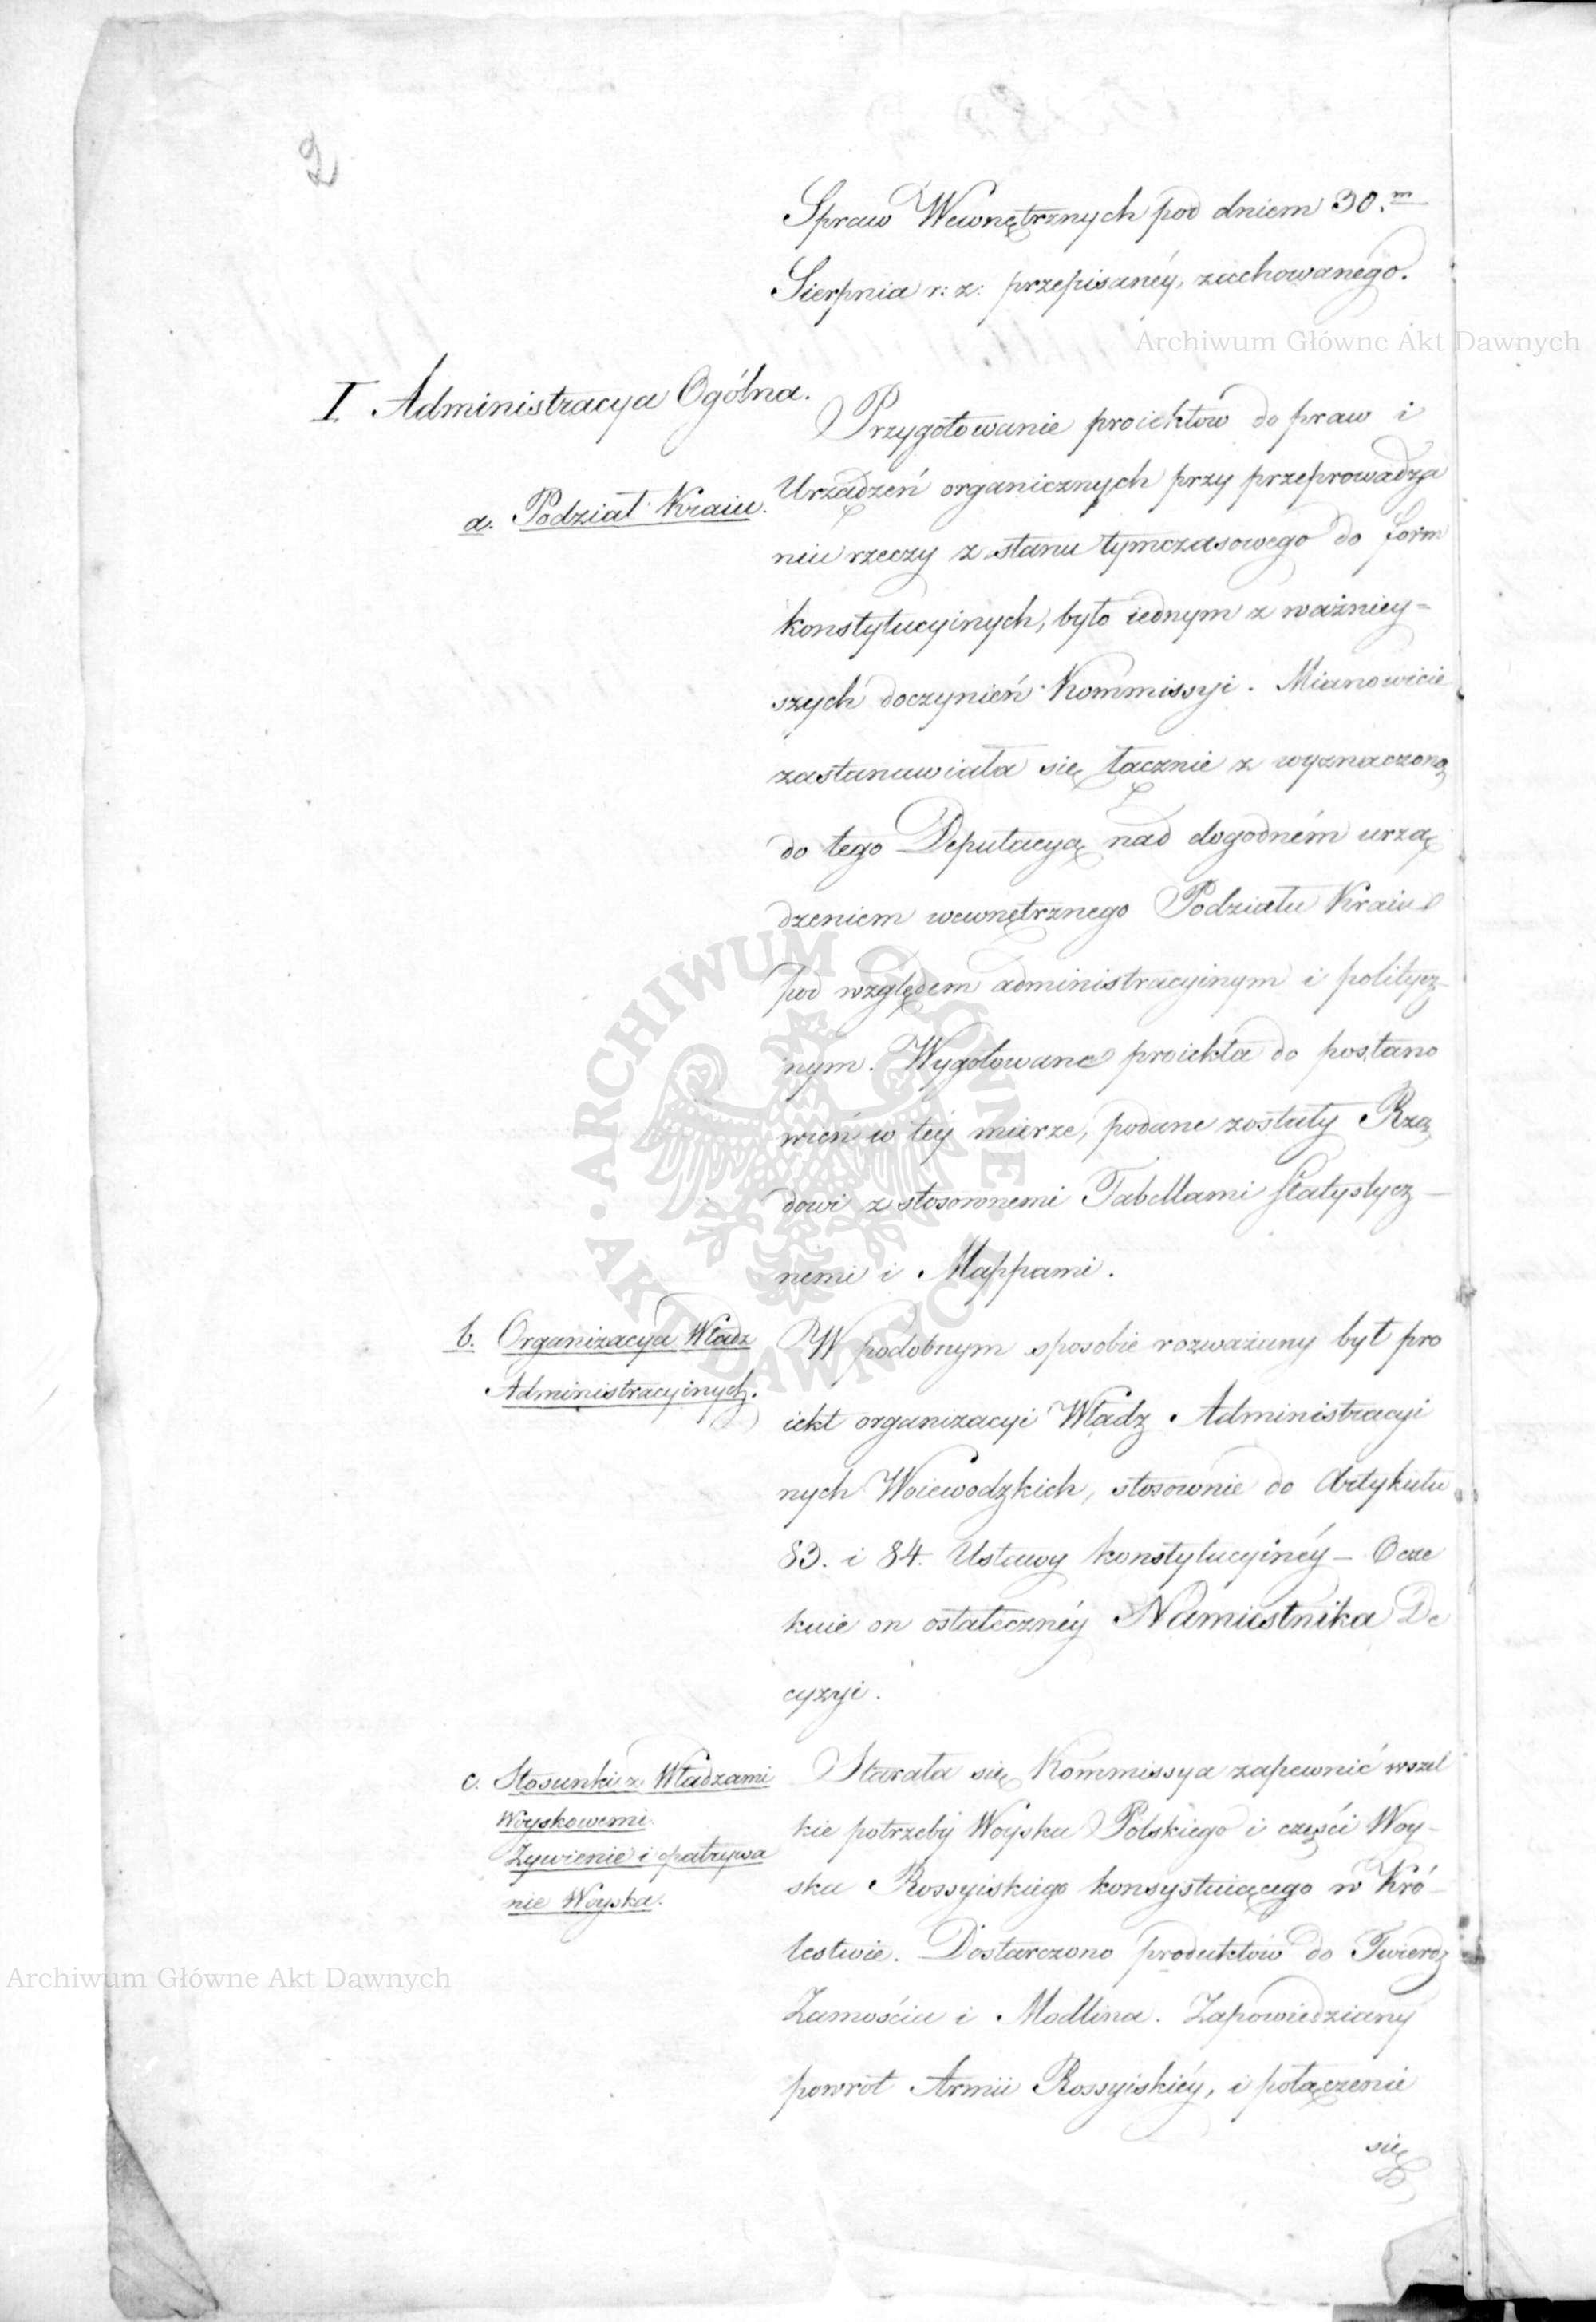 2
Spraw Wewnętrznych pod dniem 30.m
Sierpnia r: z: przepisanéy, zachowanego.
Archiwum Główne Akt Dawnych
I. Administracya Ogólna.
Przygotowanie proiektów do praw i
a. Podział Kraiu.
Urządzeń organicznych przy przeprowadza
niu rzeczy z stanu tymczasowego do form
konstytucyinych, było iednym z ważniey-
szych doczynień Kommissyi. Mianowicie
zastanawiała się łącznie z wyznaczoną
do tego Deputacyą nad dogodném urzą
dzeniem wewnętrznego Podziału Kraiu
pod względem administracyinym i politycz-
nym. Wygotowane proiekta do postano
wień w téy mierze, podane zostały Rzą
dowi z stosownemi Tabellami statystycz-
nemi i Mappami.
ARCHIWUM GŁÓWNE AKT DAWNYCH
b. Organizacya Władz
Administracyinych.
W podobnym sposobie rozważany był pro
iekt organizacyi Władz Administracyi
nych Woiewodzkich, stosownie do Artykułu
83. i 84. Ustawy konstytucyinéy - Ocze
kuie on ostatecznéy Namiestnika De
cyzyi.
c. Stosunki z Władzami
Woyskowemi.
Żywienie i opatrywa
nie Woyska.
Starała się Kommissya zapewnić wszel
kie potrzeby Woyska Polskiego i części Woy-
ska Rossyiskiego konsystuiącego w Kró-
lestwie. Dostarczono produktów do Twierdz
Zamościa i Modlina. Zapowiedziany
powrot Armii Rossyiskiéy, i połączenie
się
Archiwum Główne Akt Dawnych